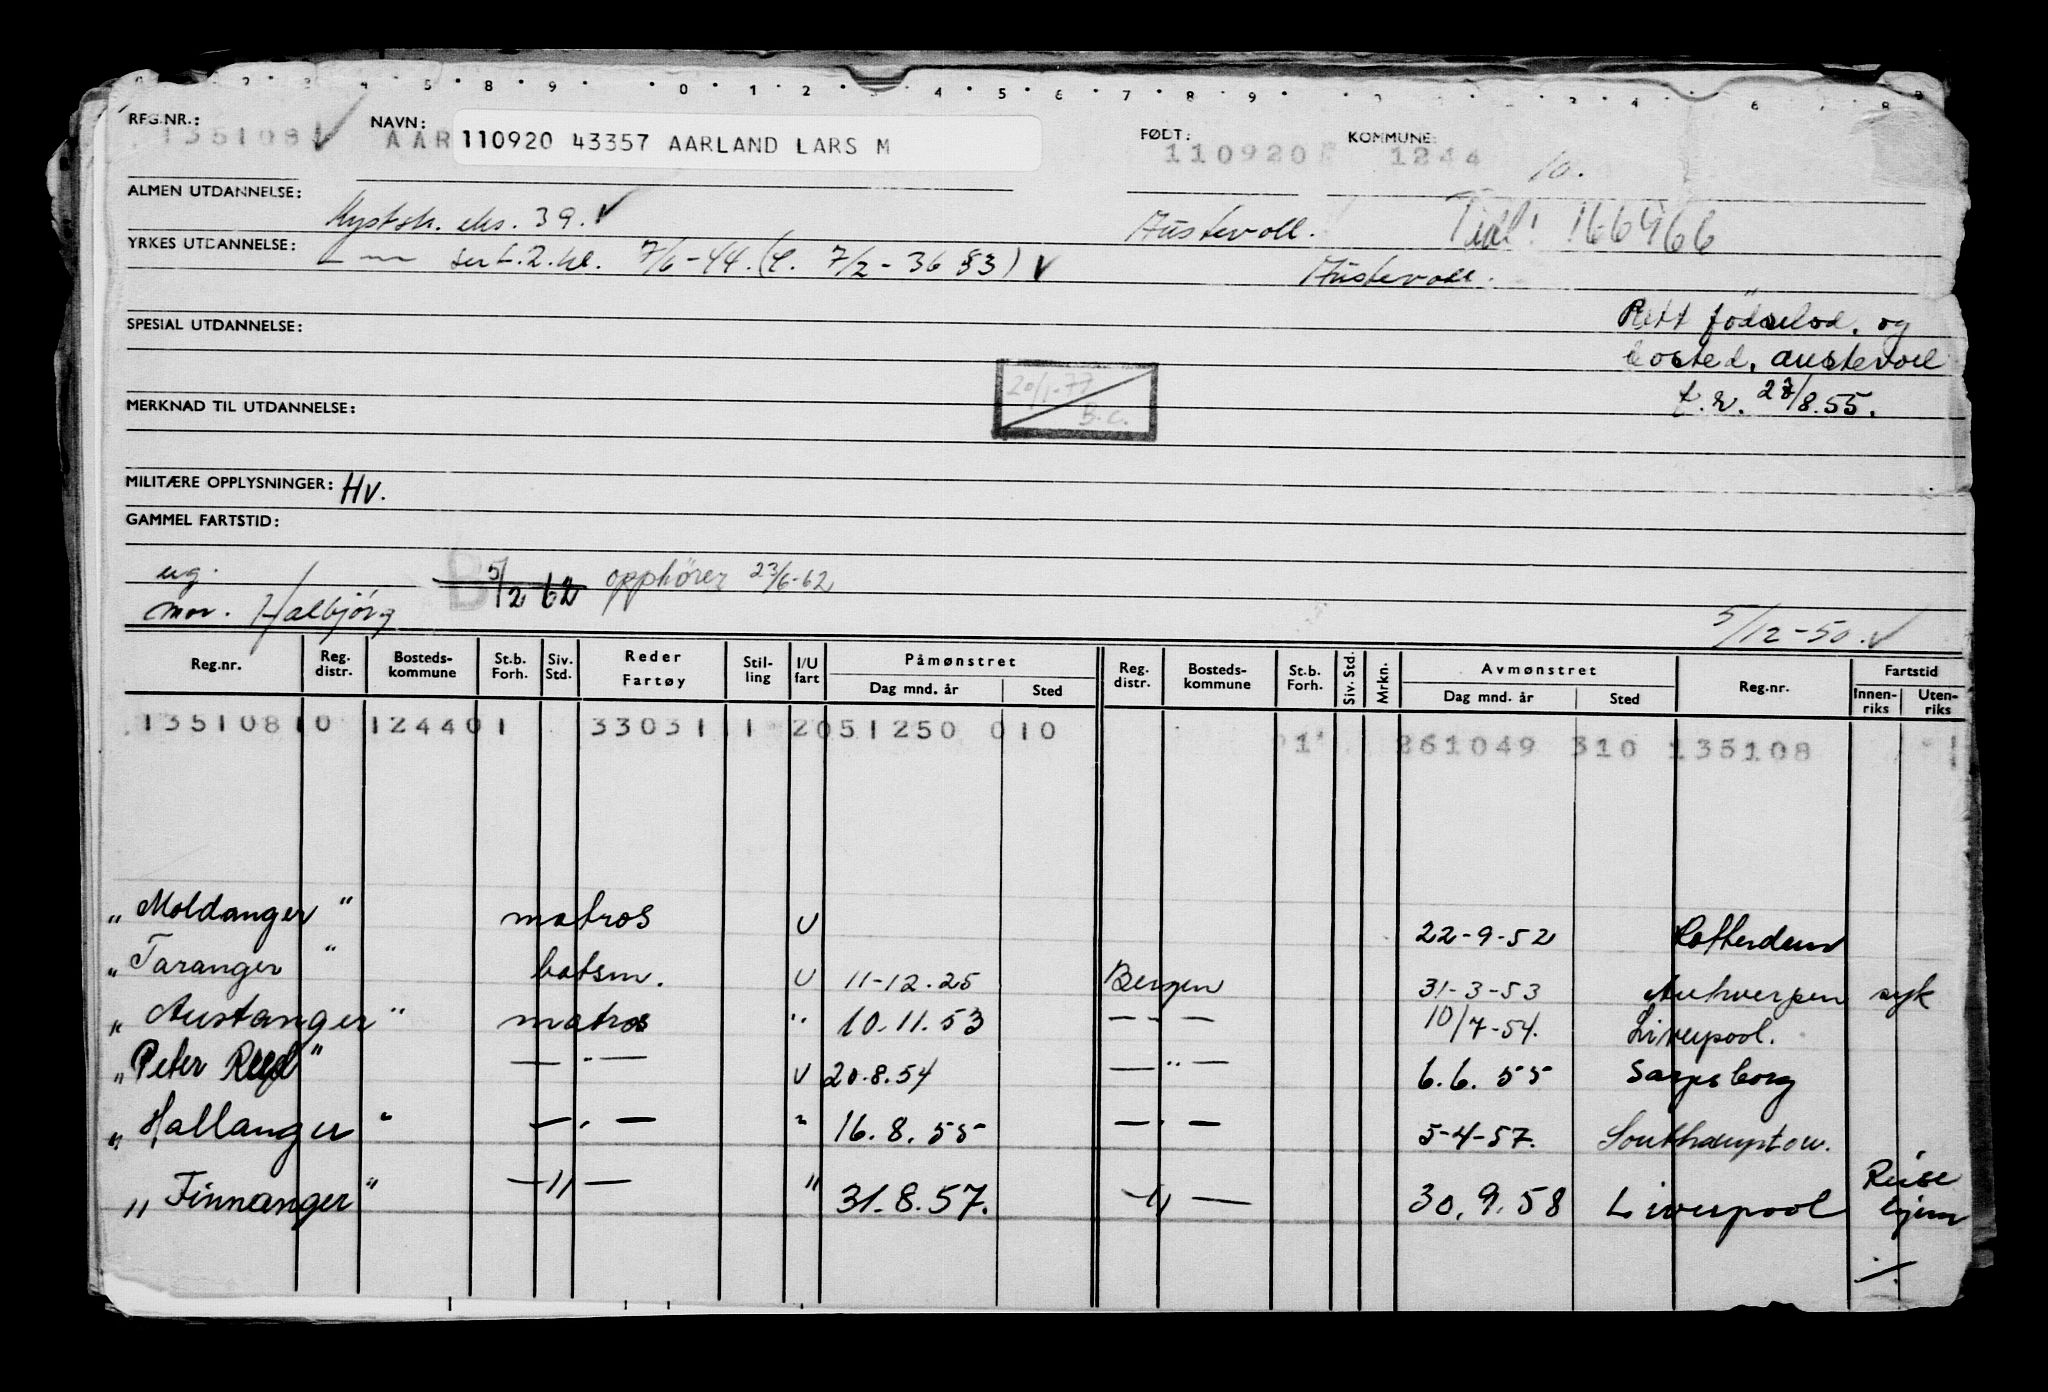 REG.NR.: 135108 NAVN: AAR 110920 43357 AARLAND LARS M FØDT: 110920 KOMMUNE: 1244
10.
ALMEN UTDANNELSE: Kystsk. eks. 39. Austevoll. Tidl: 166466
YRKES UTDANNELSE: sert. 2. kl. 7/6-44. (l. 7/2-36 §3) Austevoll.
SPESIAL UTDANNELSE: Rett fødselsd. og
bosted, austevoll
20/1-77
B.C.
MERKNAD TIL UTDANNELSE: 8.55.
MILITÆRE OPPLYSNINGER: Hv.
GAMMEL FARTSTID:
ug. B 5/2 62 opphører 23/6-62
mor. Halbjörg 5/12-50.
Reg.nr. Reg. distr. Bosteds-kommune St.b. Forh. Siv. Std. Reder Fartøy Stil-ling I/U fart Påmønstret Reg. distr. Bosteds-kommune St.b. Forh. Siv. Std. Mrkn. Avmønstret Reg.nr. Fartstid
Dag mnd. år Sted Dag mnd. år Sted Innen-riks Uten-riks
135108 10 124401 33031 1 2051250 010 1 261049 310 135108
" Moldanger " matros U 22-9-52 Rotterdam
" Taranger " batsm. U 11-12.25 Bergen 31-3-53 Antwerpen syk
" Austanger " matros " 10.11.53 — " — 10/7-54. Liverpool.
" Peter " — " — U 20.8.54 — " — 6.6.55 Sarpsborg
" Hallanger " — " — " 16.8.55 — " — 5-4-57. Southampton.
" Finnanger " — " — " 31.8.57. — " — 30.9.58 Liverpool Reise
hjem